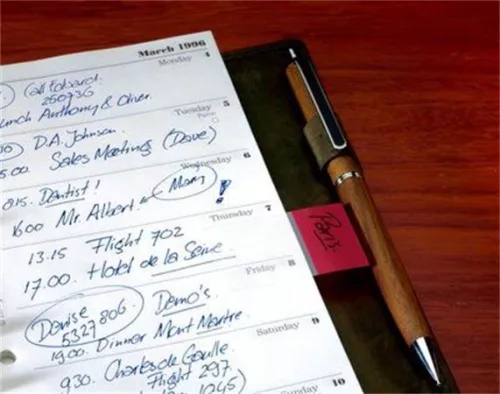 March 1996
Monday 4
Call Edward.
250736
Lunch Anthony & Oliver.
Tuesday 5
D.A. Johnson.
Sales Meeting (Dave)
Wednesday 6
815. Dentist!
1600 Mr. Albert. Mary !
Thursday 7
13.15 Flight 702
17.00. Hotel de la Seine
Paris
Friday 8
Denise Demo's
5327806.
19.00. Dinner Mont Martre.
Saturday 9
930. Charles de Gaulle.
Flight 297.
10